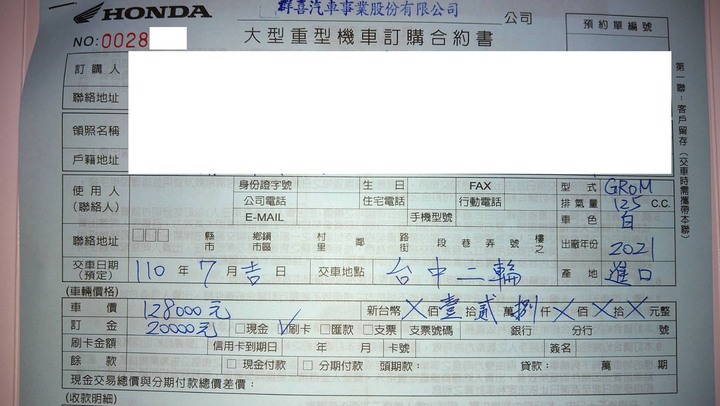 HONDA 群喜汽車事業股份有限公司 公司
NO:0028
大型重型機車訂購合約書
預約單編號
訂購人
聯絡地址
領照名稱
戶籍地址
第一聯：客戶留存（交車時需攜帶本聯）
使用人
(聯絡人)
身份證字號 生日 FAX 型式 GROM
公司電話 住宅電話 行動電話 排氣量 125 C.C.
E-MAIL 手機型號 車色 白
聯絡地址 □□□ 縣市 鄉鎮市區 村里 鄰 路街 段 巷 弄 號 樓之 出廠年份 2021
交車日期(預定) 110年7月吉日 交車地點 台中二輪 產地 進口
(車輛價格)
車價 128000元 新台幣X佰壹拾貳萬捌仟X佰X拾X元整
訂金 20000元 □現金 ☑刷卡 □匯款 □支票 支票號碼 銀行 分行 號
刷卡金額 信用卡到期日 年 月 卡號 簽名
餘款 □現金付款 □分期付款 頭期款： 貸款： 萬 期
現金交易總價與分期付款總價差價：
(收款明細)